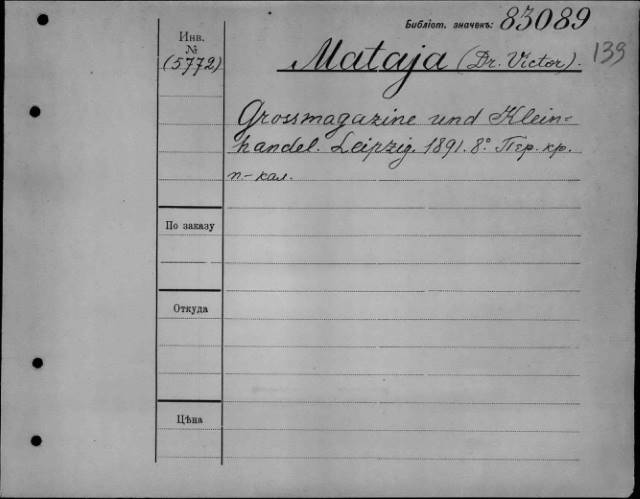 Библіот. значекъ: 83089
139
Инв.
№
(5772)
Mataja (Dr. Victor).
Grossmagazine und Klein=
handel. Leipzig. 1891. 8º Пер. кр.
п-кал.
По заказу
Откуда
Цѣна